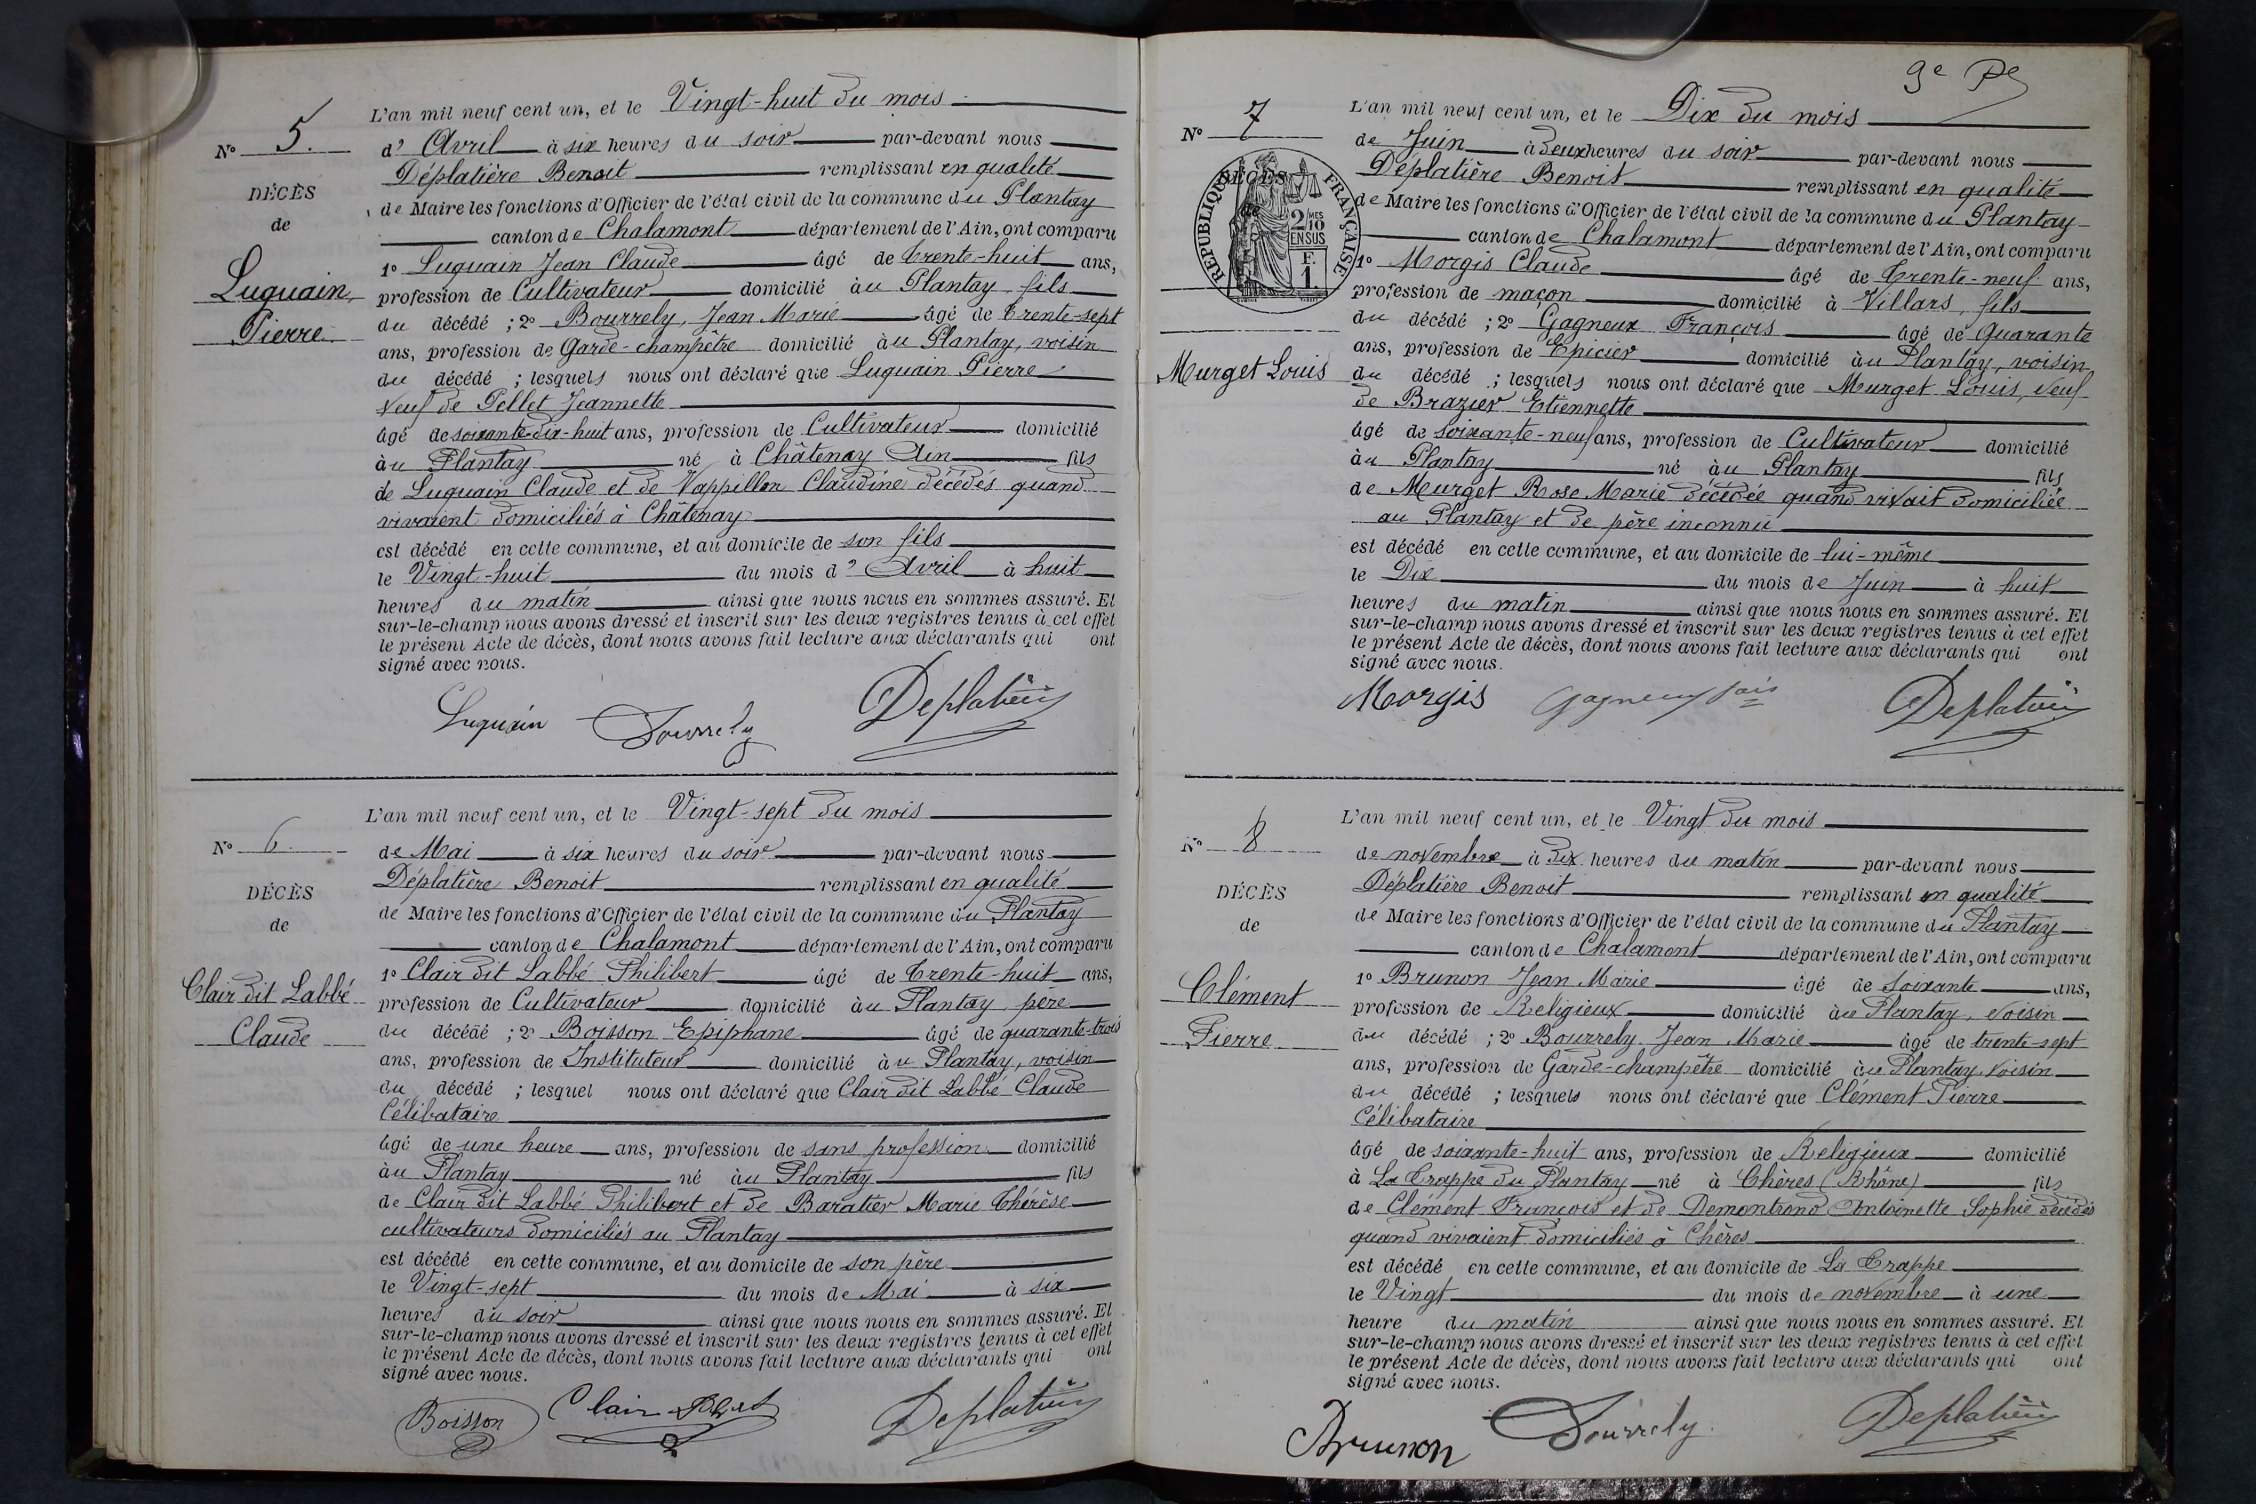 N° 5.
DÉCÈS
de
Luquain
Pierre
L'an mil neuf cent un, et le Vingt-huit du mois
d'Avril à six heures du soir par-devant nous
Déplatière Benoit remplissant en qualité
de Maire les fonctions d'Officier de l'état civil de la commune du Plantay
canton de Chalamont département de l'Ain, ont comparu
1° Luquain Jean Claude âgé de trente-huit ans,
profession de Cultivateur domicilié au Plantay fils
du décédé ; 2° Bourrely, Jean Marie âgé de trente-sept
ans, profession de Garde-champêtre domicilié au Plantay, voisin
du décédé ; lesquels nous ont déclaré que Luquain Pierre
veuf de Pellet Jeannette
âgé de soixante-dix-huit ans, profession de Cultivateur domicilié
au Plantay né à Châtenay Ain fils
de Luquain Claude et de Vappillon Claudine décédés quand
vivaient domiciliés à Châtenay
est décédé en cette commune, et au domicile de son fils
le Vingt-huit du mois d'Avril à huit
heures du matin ainsi que nous nous en sommes assuré. Et
sur-le-champ nous avons dressé et inscrit sur les deux registres tenus à cet effet
le présent Acte de décès, dont nous avons fait lecture aux déclarants qui ont
signé avec nous.
Luquain Bourrely Deplatière
N° 6
DÉCÈS
de
Clair dit Labbé
Claude
L'an mil neuf cent un, et le Vingt-sept du mois
de Mai à six heures du soir par-devant nous
Déplatière Benoit remplissant en qualité
de Maire les fonctions d'Officier de l'état civil de la commune du Plantay
canton de Chalamont département de l'Ain, ont comparu
1° Clair dit Labbé Philibert âgé de trente-huit ans,
profession de Cultivateur domicilié au Plantay père
du décédé ; 2° Boisson Epiphane âgé de quarante-trois
ans, profession de Instituteur domicilié au Plantay, voisin
du décédé ; lesquel nous ont déclaré que Clair dit Labbé Claude
Célibataire
âgé de une heure ans, profession de sans profession domicilié
au Plantay né au Plantay fils
de Clair dit Labbé Philibert et de Baratier Marie Thérèse
cultivateurs domiciliés au Plantay
est décédé en cette commune, et au domicile de son père
le Vingt-sept du mois de Mai à six
heures du soir ainsi que nous nous en sommes assuré. Et
sur-le-champ nous avons dressé et inscrit sur les deux registres tenus à cet effet
le présent Acte de décès, dont nous avons fait lecture aux déclarants qui ont
signé avec nous.
Boisson Clair Deplatière
9e
N° 7
DÉCÈS
de
RÉPUBLIQUE FRANÇAISE
2/10MES
EN SUS
F.
1.
Murget Louis
L'an mil neuf cent un, et le Dix du mois
de Juin à deux heures du soir par-devant nous
Déplatière Benoit remplissant en qualité
de Maire les fonctions d'Officier de l'état civil de la commune du Plantay
canton de Chalamont département de l'Ain, ont comparu
1° Morgis Claude âgé de trente-neuf ans,
profession de maçon domicilié à Villars, fils
du décédé ; 2° Gagneux François âgé de Quarante
ans, profession de Epicier domicilié au Plantay, voisin
du décédé ; lesquels nous ont déclaré que Murget Louis, veuf
de Brazier Etiennette
âgé de soixante-neuf ans, profession de Cultivateur domicilié
au Plantay né au Plantay fils
de Murget Rose Marie décédée quand vivait domiciliée
au Plantay et de père inconnu
est décédé en cette commune, et au domicile de lui-même
le Dix du mois de Juin à huit
heures du matin ainsi que nous nous en sommes assuré. Et
sur-le-champ nous avons dressé et inscrit sur les deux registres tenus à cet effet
le présent Acte de décès, dont nous avons fait lecture aux déclarants qui ont
signé avec nous.
Morgis Gagneux fois Deplatière
N° 8
DÉCÈS
de
Clément
Pierre
L'an mil neuf cent un, et le Vingt du mois
de novembre à dix heures du matin par-devant nous
Déplatière Benoit remplissant en qualité
de Maire les fonctions d'Officier de l'état civil de la commune du Plantay
canton de Chalamont département de l'Ain, ont comparu
1° Brunon Jean Marie âgé de soixante ans,
profession de Religieux domicilié au Plantay, voisin
du décédé ; 2° Bourrely Jean Marie âgé de trente-sept
ans, profession de Garde-champêtre domicilié au Plantay voisin
du décédé ; lesquels nous ont déclaré que Clément Pierre
Célibataire
âgé de soixante-huit ans, profession de Religieux domicilié
à La Trappe du Plantay né à Chères (Rhône) fils
de Clément François et de Demontrond Antoinette Sophie décédés
quand vivaient domiciliés à Chères
est décédé en cette commune, et au domicile de La Trappe
le Vingt du mois de novembre à une
heure du matin ainsi que nous nous en sommes assuré. Et
sur-le-champ nous avons dressé et inscrit sur les deux registres tenus à cet effet
le présent Acte de décès, dont nous avons fait lecture aux déclarants qui ont
signé avec nous.
Brunon Bourrely Deplatière